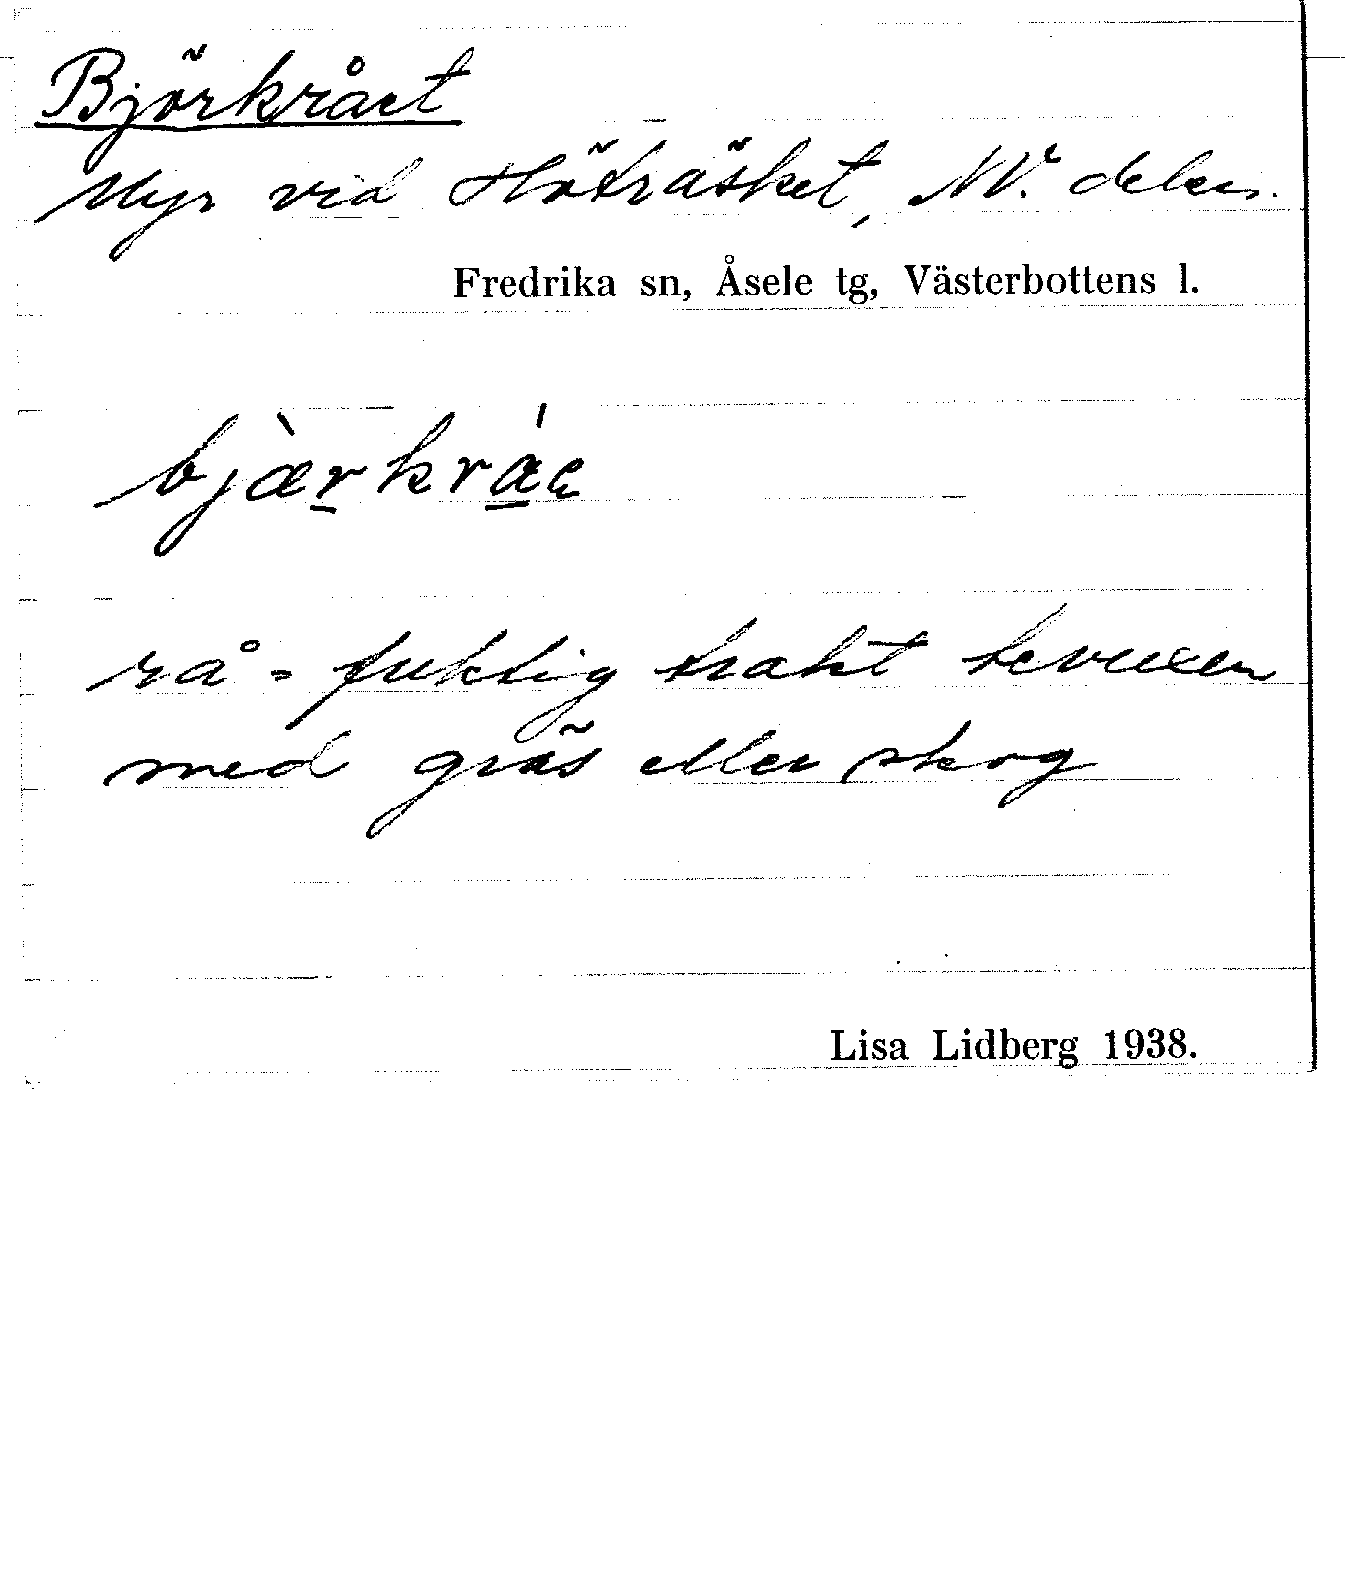 Björkrået
Myr vid Höträsket, NV. delen.
Fredrika sn, Åsele tg, Västerbottens l.
bjæ̀rkráe
rå = fuktig trakt bevuxen
med gräs eller skog
Lisa Lidberg 1938.